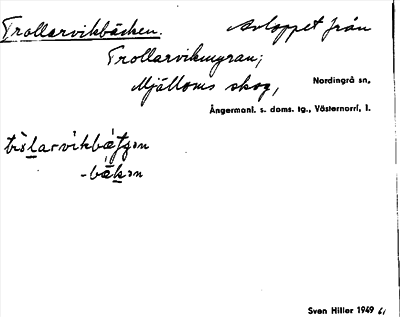 Trollarvikbäcken. Avloppet från
Trollarvikmyran;
Mjälloms skog, Nordingrå sn,
Ångermanl. s. doms. tg., Västernorrl. l.
-bäkən
Sven Hiller 1949